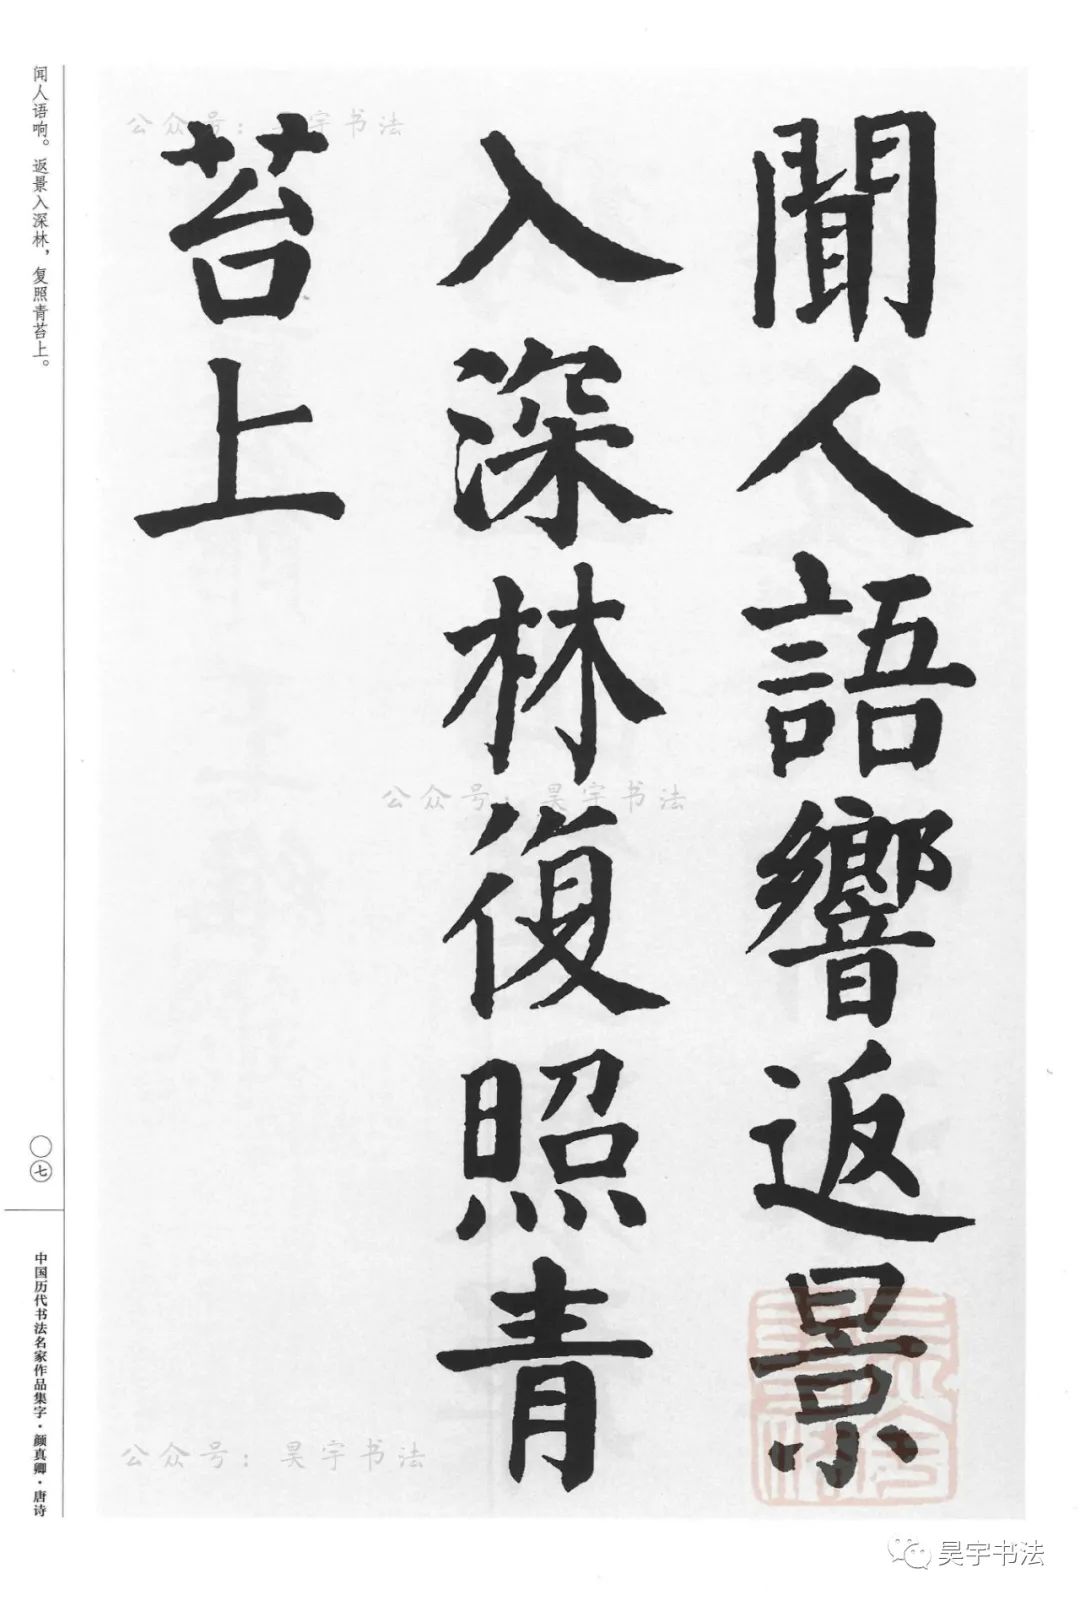 聞人語響返景
入深林復照青
苔上
闻人语响。返景入深林，复照青苔上。
〇七
中国历代书法名家作品集字·颜真卿·唐诗
公众号：昊宇书法
公众号：昊宇书法
公众号：昊宇书法
昊宇书法